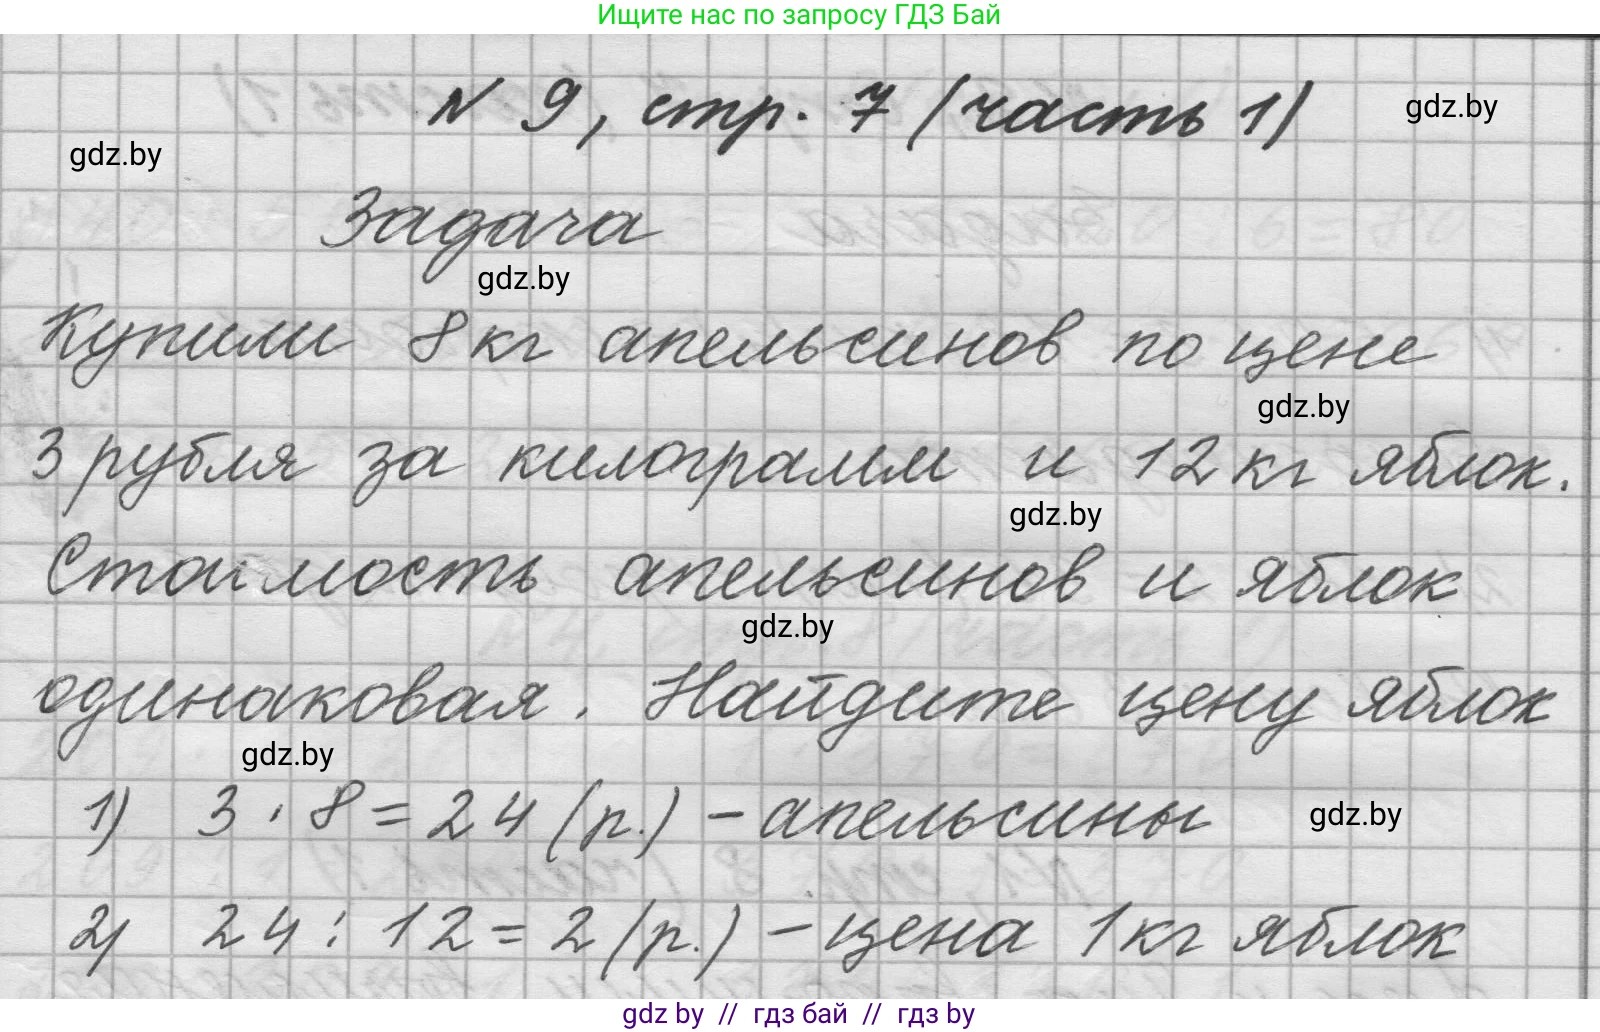 Ищите нас по запросу ГДЗ Бай
N 9, стр. 7 (часть 1)
gdz.by
gdz.by
Задача
gdz.by
Купили 8 кг апельсинов по цене
gdz.by
3 рубля за килограмм и 12 кг яблок.
gdz.by
Стоимость апельсинов и яблок
gdz.by
одинаковая. Найдите цену яблок
gdz.by
1) 3 · 8 = 24 (р.) - апельсины
gdz.by
2) 24 : 12 = 2 (р.) - цена 1 кг яблок
gdz by // гдз бай // гдз by